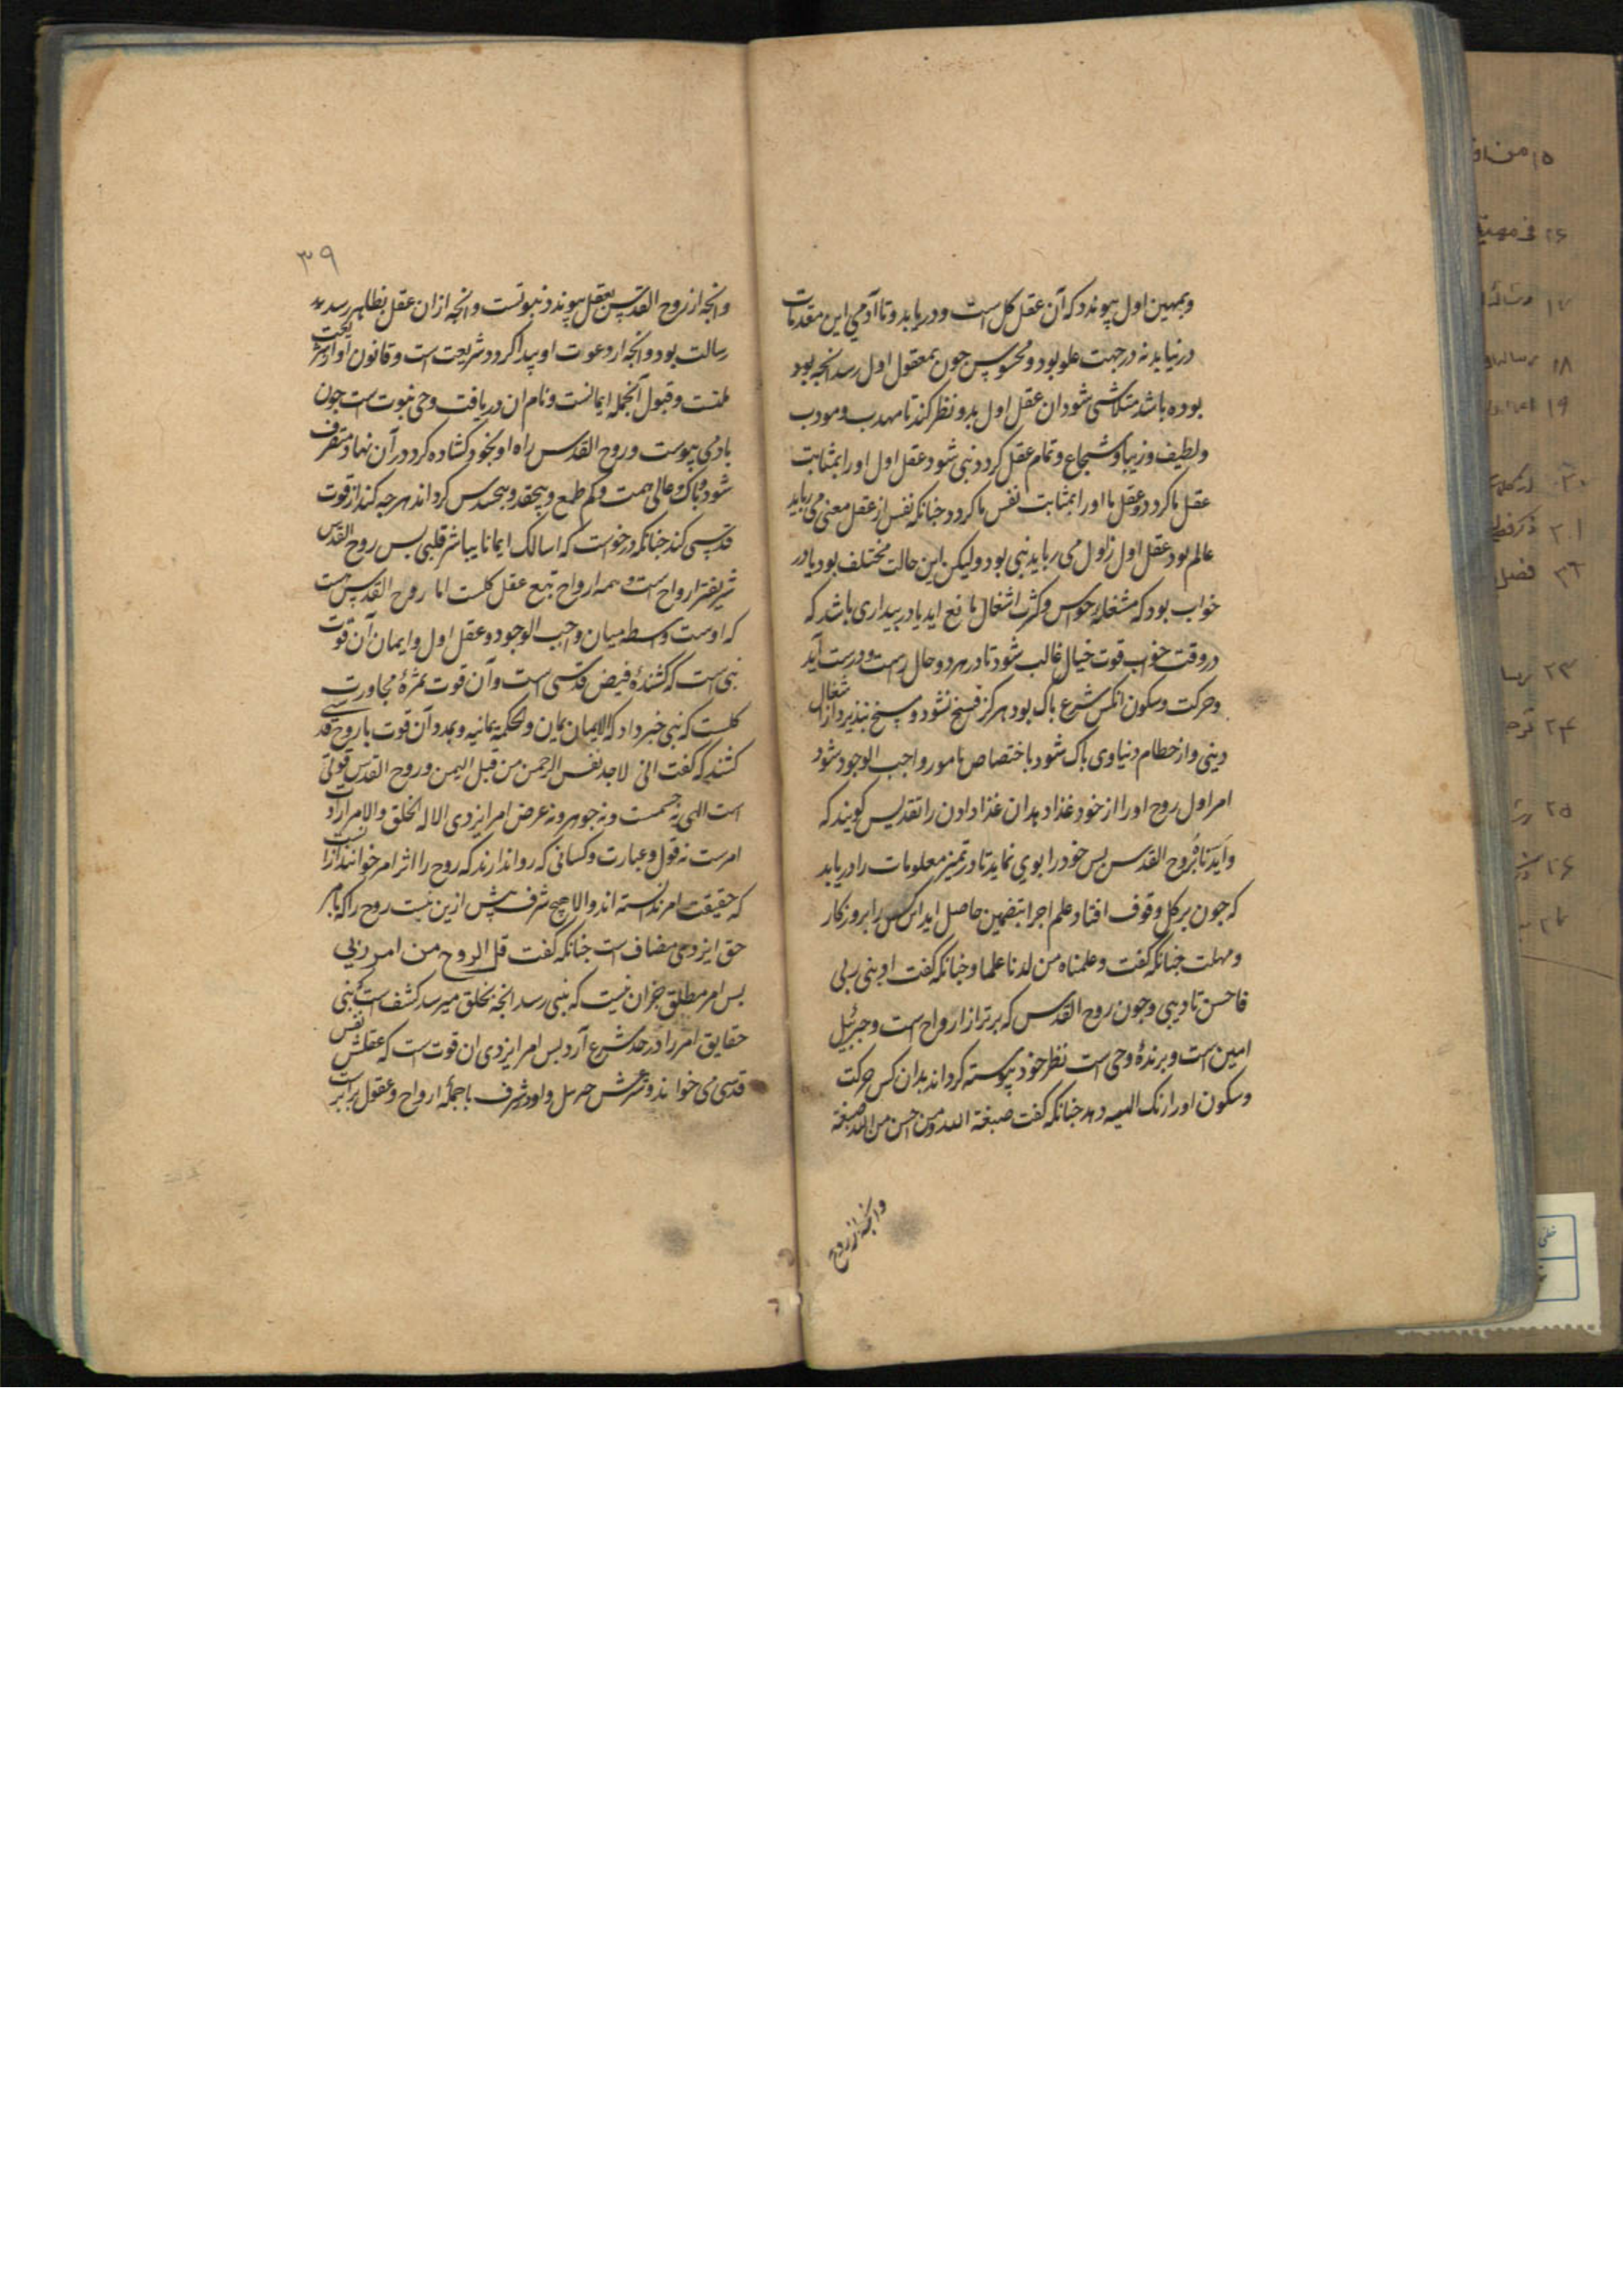 وبمهین اول پیوندد که آن عقل کل است و دریابد و تا آدمی این مقدمات
درنیابد نه در جهت علو بود و محسوس چون بمعقول اول رسد انچه بود
بوده باشد متلاشی شود ان عقل اول بدو نظر کند تا مهذب و مودب
ولطیف و زیبا و شجاع و تمام عقل کردد نبی شود عقل اول او را بمثابت
عقل ما کردد و عقل ما او را بمثابت نفس ما کردد چنانکه نفس از عقل معنی می رباید
عالم بود عقل اول ز اول می رباید نبی بود ولیکن این حالت مختلف بود یا در
خواب بود که مشغلهٔ حواس و کثرت اشغال مانع اید یا در بیداری باشد که
در وقت خواب قوت خیال غالب شود تا در هر دو حال راست و درست آید
وحرکت و سکون انکس شرع پاک بود هرکز فسخ نشود و نسخ نپذیرد از اشغال
دینی و از حطام دنیاوی پاک شود باختصاص نامور واجب الوجود شود
امر اول روح او را از خود غذا دهد ان غذا دادن را تقدیس کویند که
وایدناه بروح القدس پس خود را بوی نماید تا در تمیز معلومات را دریابد
که چون بر کل وقوف افتاد علم اجزا بتضمین حاصل اید ان کس را بروزکار
ومهلت چنانکه کفت وعلمناه من لدنا علما وچنانکه کفت ادبنی ربی
فاحسن تادیبی وچون روح القدس که برتر از ارواح است وجبرئیل
امین است وبرندهٔ وحی است نظر خود پیوسته کرداند بدان کس حرکت
وسکون او را رنک الهیه دهد چنانکه کفت صبغة الله ومن احسن من الله صبغة
وانچه از روح
۳۹
وانچه از روح القدس بعقل پیوندد نبوتست و انچه از ان عقل بظاهر رسد
رسالت بود وانچه از دعوت او پیدا کردد شریعت است وقانون او
ملتست وقبول آنجمله ایمانست ونام ان دریافت وحی نبوت است چون
بادمی پیوست و روح القدس راه او بخود کشاده کرد در آن نهاد متصرف
شود و پاک و عالی همت و کم طمع و بیحقد و بیحسد کرداند هرچه کند از قوت
قدسی کند چنانکه درخواست که اسالک ایمانا یباشر قلبی پس روح القدس
شریفتر ارواح است وهمه ارواح تبع عقل کلست اما روح القدس است
که اوست واسطه میان واجب الوجود وعقل اول وایمان آن قوت
نبی است که کشندهٔ فیض قدسی است وآن قوت ثمرهٔ مجاورت
کلست که نبی خبر داد که الایمان یمان والحکمة یمانیه وبدو آن قوت با روح قدسی
کشند که کفت انی لاجد نفس الرحمن من قبل الیمن وروح القدس قوتی
است الهی نه جسمست ونه جوهر ونه عرض امر ایزدی الا له الخلق والامر
امرست نه قول وعبارت وکسانی که روا ندارند که روح را اثر امر خوانند از انست
که حقیقت امر ندانسته اند والا هیچ شرف بیش ازین نیست روح را که بامر
حق ایزدی مضاف است چنانکه کفت قل الروح من امر ربی
پس امر مطلق جز آن نیست که بنبی رسد انچه بخلق میرسد کشف است که نبی
حقایق امر را در حد شرع آرد پس امر ایزدی ان قوت است که عقلش نفس
قدسی می خواند وشرعش جبریل و او در شرف با جملهٔ ارواح وعقول برابر است